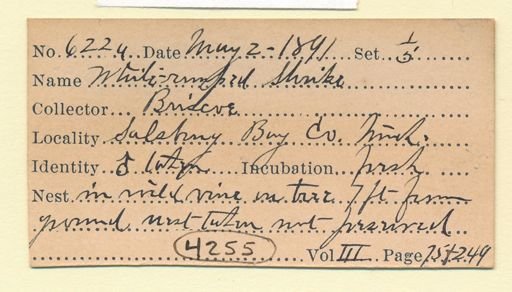 No. 622a Date May 2-1891 Set 1/5
Name White-rumped Shrike
Collector Briscoe
Locality Salsburg Bay Co. Mich.
Identity & taken Incubation fresh
Nest in wild vine in tree 7 ft from
ground nest taken not preserved
4255 Vol III Page 75+249